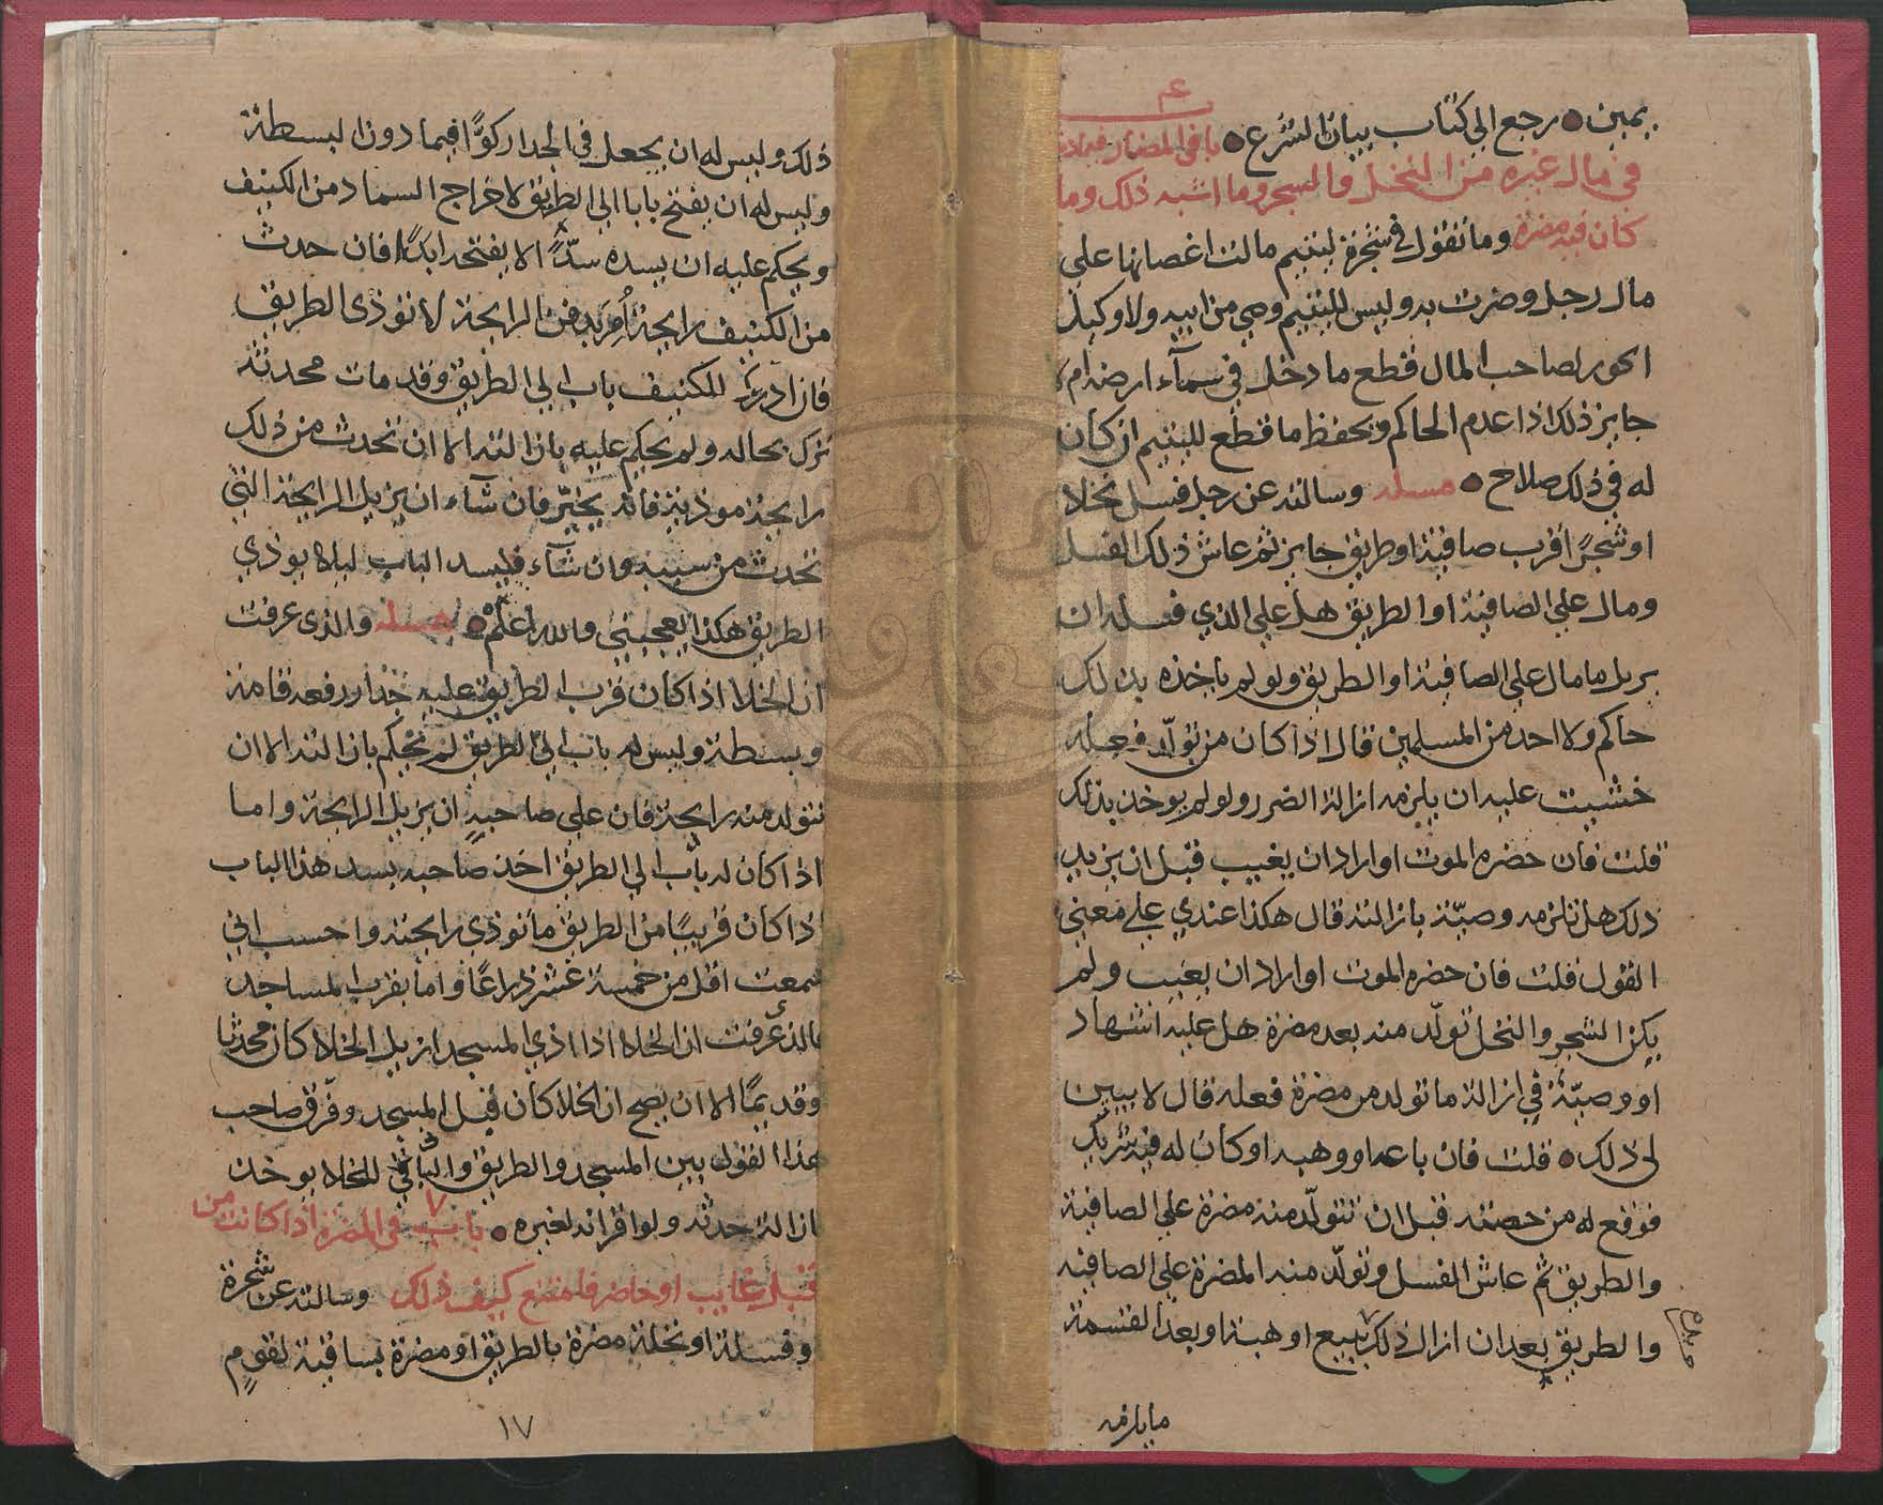 يمين ● رجع الي كتاب بيان الشرع ● باب في المضار
في مال غيره من النخل والشجر وما اشبه ذلك وما
كان فيه مضرة وما تقول في شجرة ليتيم مالت اغصانها علي
مال رجل وضرت به وليس لليتيم وصي من ابيه ولا وكيل
ايجوز لصاحب المال قطع ما دخل في سمآء ارضه ام لا
جايز ذلك اذا عدم الحاكم ويحفظ ما قطع لليتيم ان كان
له في ذلك صلاح ● مسئلة وسالته عن رجل فسل نخلا
او شجرً اقرب صافية او طريق جايز ثم عاش ذلك الفسل
ومال علي الصافية او الطريق هل علي الذي فسله ان
يزيل ما مال علي الصافية او الطريق ولو لم ياخذه بذلك
حاكم ولا احد من المسلمين قال اذا كان من تولّد فعله
خشيت عليه ان يلزمه ازالة الضرر ولو لم يوخذ بذلك
قلت فان حضره الموت او اراد ان يغيب قبل ان يزيل
ذلك هل تلزمه وصيّة بازالته قال هكذا عندي علي معني
القول قلت فان حضره الموت او اراد ان يغيب ولم
يكن الشجر والنخل تولّد منه بعد مضرة هل عليه اشهاد
او وصيّة في ازالة ما تولد من مضرة فعله قال لا يبين
لي ذلك ● قلت فان باعه او وهبه او كان له فيه شريك
فوقع له من حصته قبل ان تتولّد منه مضرة علي الصافية
والطريق ثم عاش الفسل وتولّد منه المضرة علي الصافيه
والطريق بعد ان ازال ذلك ببيع او هبة او بعد القسمة
ما يلزمه
ذلك وليس له ان يجعل في الجدار كوًّا فيما دون البسطة
وليس له ان يفتح بابا الي الطريق لاخراج السماد من الكنيف
ويحكم عليه ان يسده سدًّا الا يفتحه ابدًا فان حدث
من الكنيف رايحة اُمِرَ بدفن الرايحة لا توذي الطريق
فان ادرك للكنيف باب الي الطريق وقد مات محدثه
ترك بحاله ولم يحكم عليه بازالته الا ان تحدث من ذلك
رايحة موذية فانه يخيّر فان شآء ان يزيل الرايحة التي
تحدث من سببه وان شآء فليسد الباب ليلا يوذي
الطريق هكذا يعجبني والله اعلم ● مسئلة والذي عرفت
ان الخلا اذا كان قرب الطريق عليه جدار رفعه قامة
وبسطة وليس له باب الي الطريق لم نحكم بازالته الا ان
تتولد منه رايحة فان علي صاحبه ان يزيل الرايحة واما
اذا كان له باب الي الطريق اخذ صاحبه بسد هذا الباب
اذا كان قريبًا من الطريق ما توذي رايحته واحسب اني
سمعت اقل من خمسة عشر ذراعًا واما بقرب المساجد
فالذي عرفت ان الخلا اذا اذي المسجد ازيل الخلا كان محدثا
وقديمًا الا ان يصح ان الخلا كان قبل المسجد وفرق صاحب
هذا القول بين المسجد والطريق والباقي للخلا يوخذ
بازالة حدثه ولو اقر انه لغيره ● باب في المضرة اذا كانت من
قبل غايب او حاضر فامتنع كيف ذلك وسالته عن شجرة
وفسلة او نخلة مضرة بالطريق او مضرة بساقية لقوم
١٧